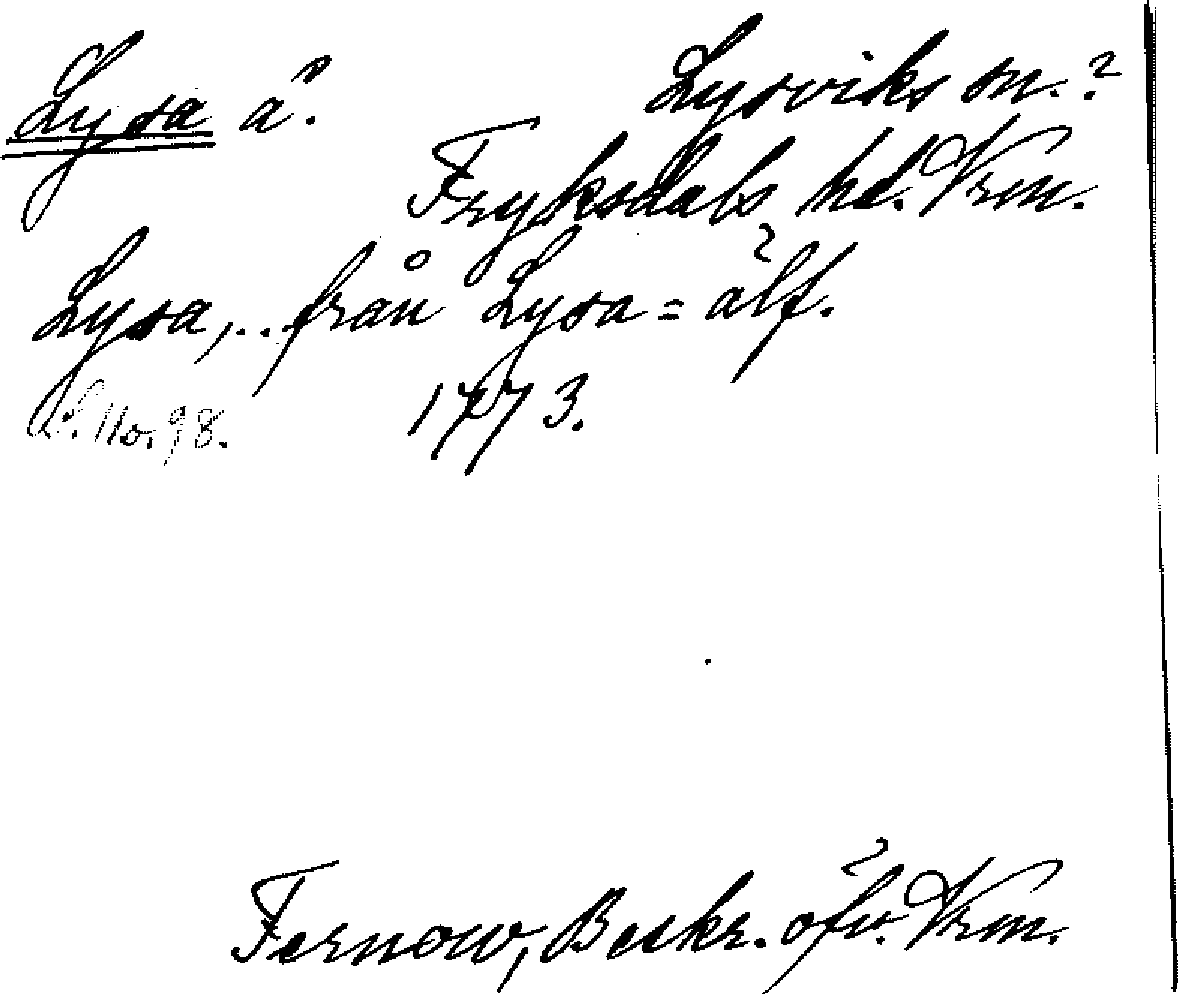 Lysa å. Lysviks sn.?
Fryksdals hd. Vrm.
Lysa, .. från Lysa=älf.
1773.
S. 110. 98.
Fernow, Beskr. öfv. Vrm.